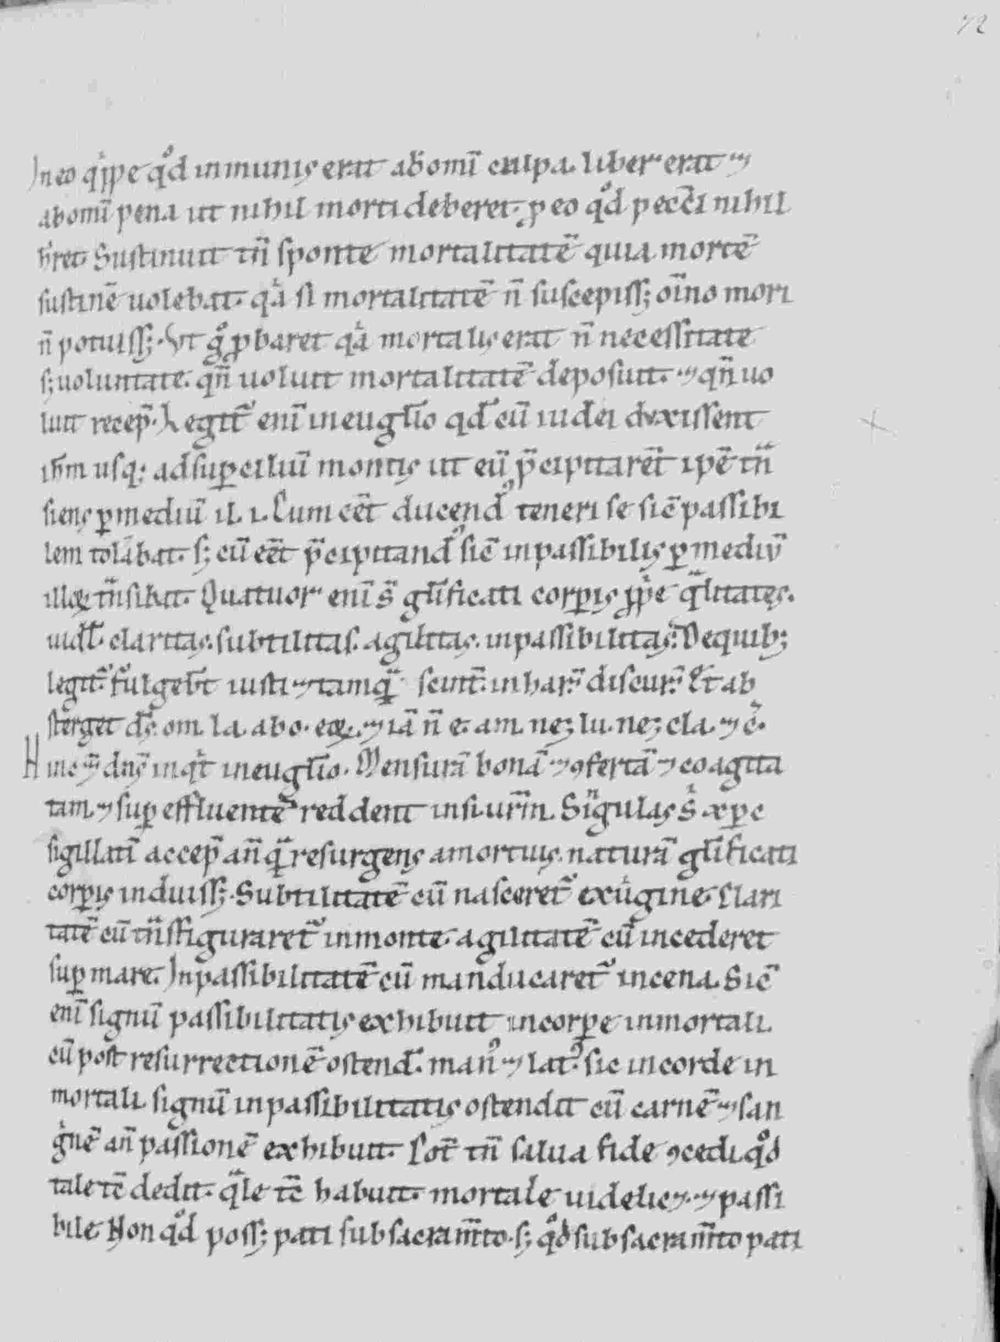 72
In eo q̍ppe qͦd inmunis erat ab omī culpa. liber erat ⁊
ab omī pena ut nihil morti deberet. ꝓ eo qͦd peccī nihil
h̄ret. Sustinuit tn̄ sponte mortalitatē quia mortē
sustinē uolebat. qa̍ si mortalitatē n̄ suscepiss; oīno mori
n̄ potuiss;. Vt gͦ ꝓbaret qa̍ mortalis erat n̄ necessitate
s; uoluntate. qn̄ uoluit mortalitatē deposuit. ⁊ qn̄ uo
luit recep̄. Legit᷑ enī in euglīo qd̄ cū iudei duxissent
ihm̄ usq; ad suꝑciliū montis ut eū p̄cipitarēt ipē tn̄
siens ꝑ mediū il. i. Cum eēt ducendꝰ teneri se sic̄ passibi
lem tolabat. s; cū eēt p̄cipitandꝰ sic̄ inpassibilis ꝑ mediū
illoꝝ tn̄siliit. Quatuor enī s̄ glīficati corꝑis ꝓp̍e qͣlitates.
uidl̄. claritas. subtilitas. agilitas. inpassibilitas. De quib;
legit᷑. fulgebt̄ iusti ⁊ tamqͣ scint᷑. in har᷑. discur᷑. Et ab
sterget ds̄. om. la. abo. eoꝝ. ⁊ iā n̄ e. am. nez lu. nez cla. ⁊ c̄.
Hinc ⁊ dn̄s inq̍t in euglīo. Mensurā bonā ⁊ ꝯfertā ⁊ coagita
tam. ⁊ suꝑ effluentē reddent in si. ur̄m. Singulas g̍ xp̄c
sigillatī accep̄ an̄ qͣ resurgens a mortuis. naturā glīficati
corꝑis induiss;. Subtilitatē cū nasceret᷑ ex uigine. Clari
tatē cū tn̄sfiguraret᷑ in monte. agilitatē cū incederet
suꝑ mare. Inpassibilitatē cū manducaret᷑ in cena. Sic̄
enī signū passibilitatis exhibuit in corꝑe inmortali.
cū post resurrectionē ostend̄. manꝰ ⁊ latꝰ. sic in corde in
mortali signū inpassibilitatis ostendit cū carnē ⁊ san
g̍nē an̄ passionē exhibuit. Pot̄ tn̄ salua fide ꝯcedi. qͦd
tale tc̄ dedit. qͣle tc̄ habuit. mortale uidelic⁊. ⁊ passi
bile. Non qͦd poss; pati sub sacram̄to. s; qͦd sub sacram̄to pati